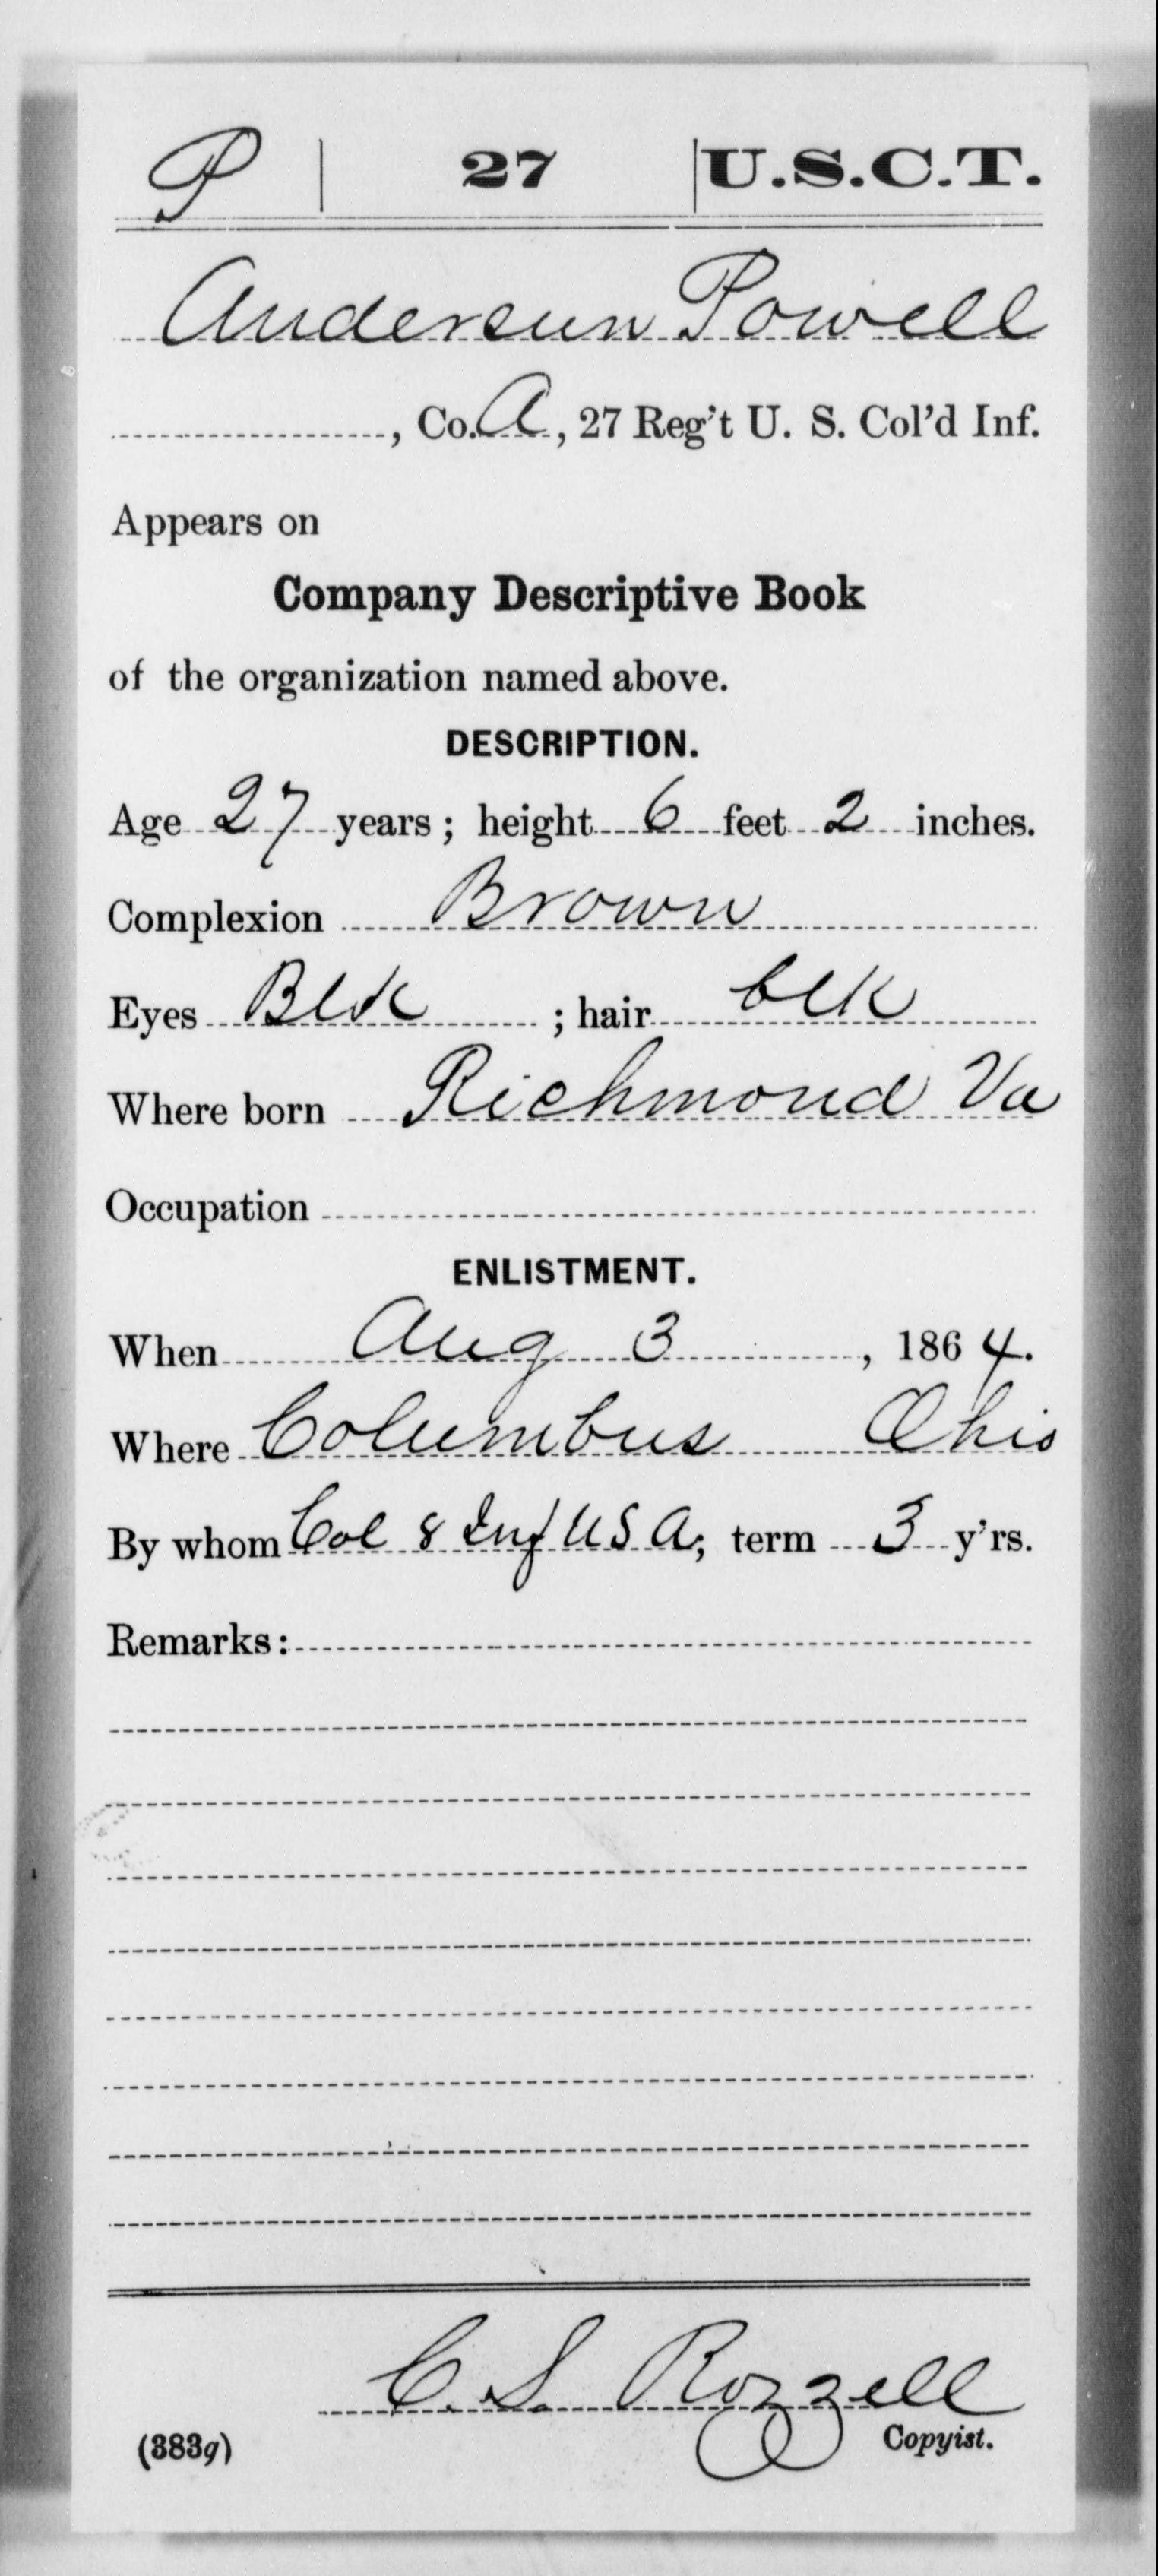 P 27 U.S.C.T.
Anderson Powell
, Co. A, 27 Reg't U. S. Col'd Inf.
Appears on
Company Descriptive Book
of the organization named above.
DESCRIPTION.
Age 27 years; height 6 feet 2 inches.
Complexion Brown
Eyes Blk ; hair blk
Where born Richmond Va
Occupation
ENLISTMENT.
When Aug 3, 1864.
Where Columbus Ohio
By whom Col 8 Inf U S A; term 3 y'rs.
Remarks:
C. S. Rozzell
(383g) Copyist.